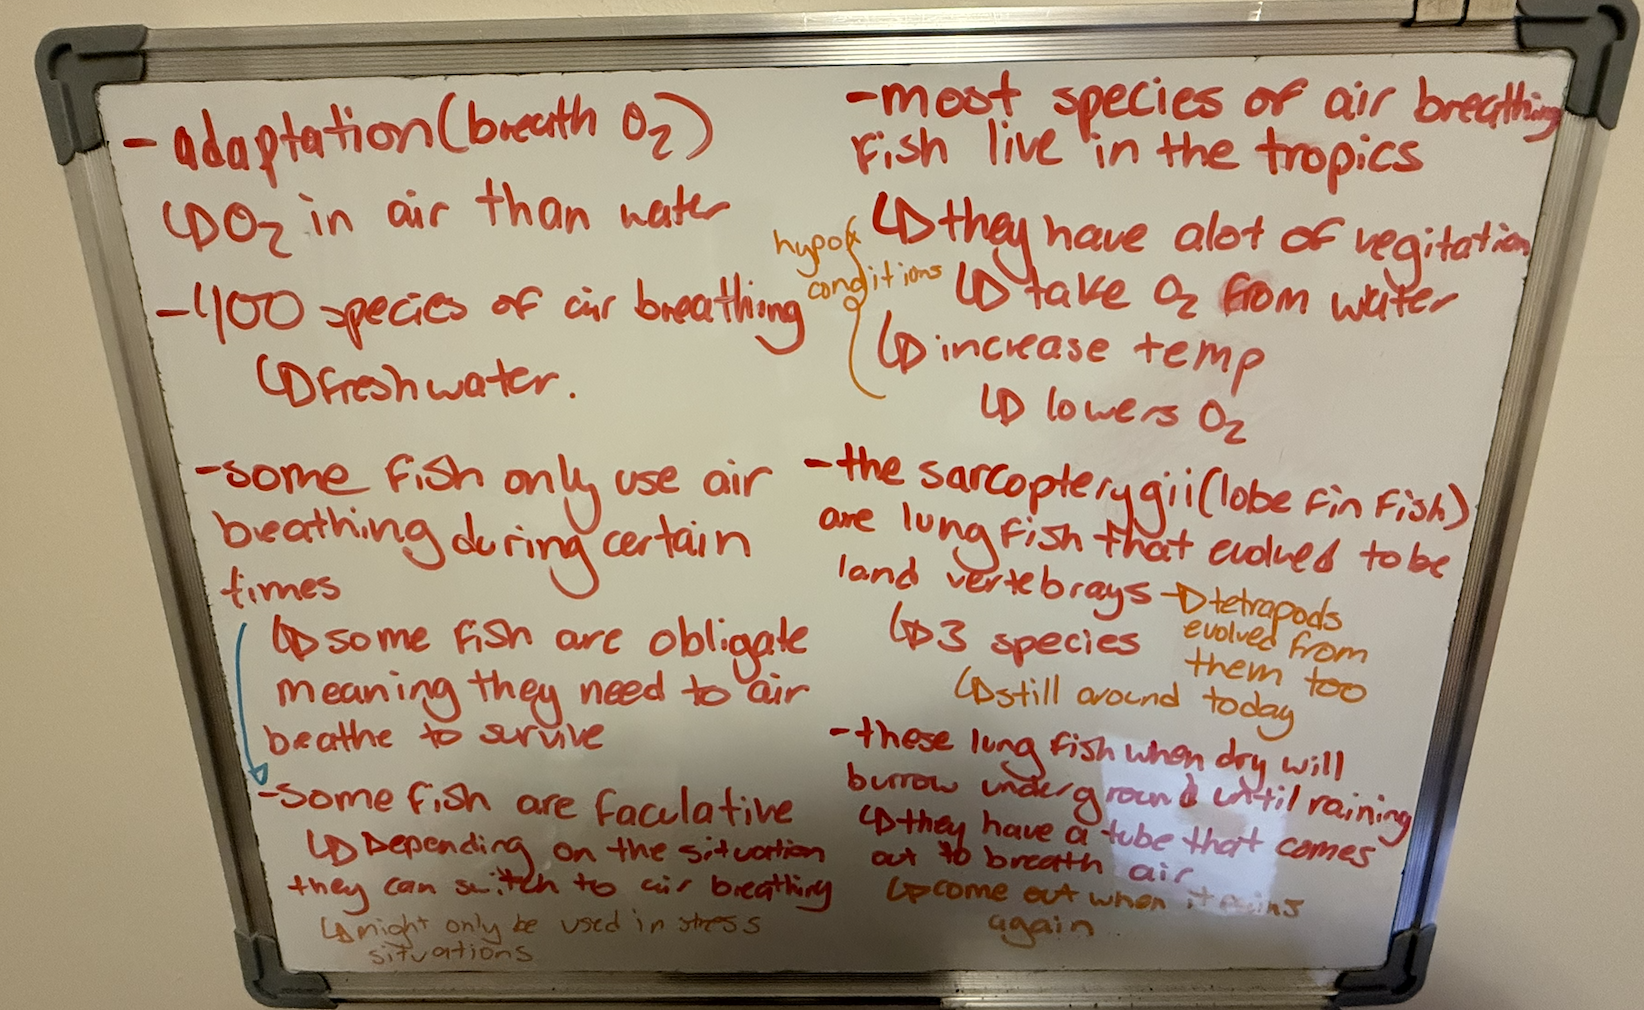 - adaptation (breath O2)
↳ O2 in air than water
- 400 species of air breathing
↳ freshwater.
- some fish only use air
breathing during certain
times
↳ some fish are obligate
meaning they need to air
breathe to survive
- some fish are faculative
↳ Depending on the situation
they can switch to air breathing
↳ might only be used in stress
situations
- most species of air breathing
fish live in the tropics
↳ they have alot of vegitation
↳ take O2 from water
↳ increase temp
↳ lowers O2
hypox
conditions
- the sarcopterygii (lobe fin fish)
are lung fish that evolved to be
land vertebrays → tetrapods
evolved from
them too
↳ 3 species
↳ still around today
- these lung fish when dry will
burrow underground until raining
↳ they have a tube that comes
out to breath air
↳ come out when it rains
again